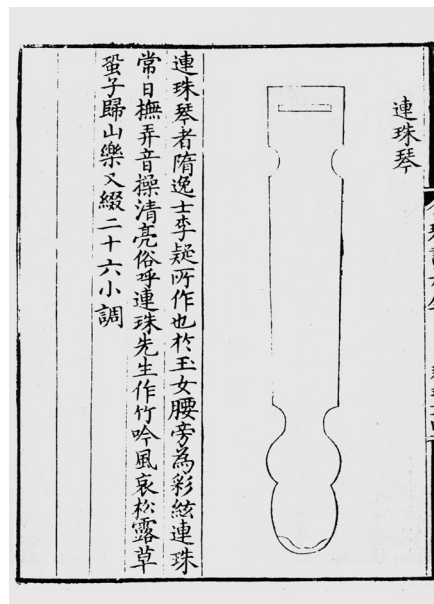 連珠琴
連珠琴者隋逸士李疑所作也於玉女腰旁為彩絃連珠
常日撫弄音操清亮俗呼連珠先生作竹吟風哀松露草
蛩子歸山樂又綴二十六小調